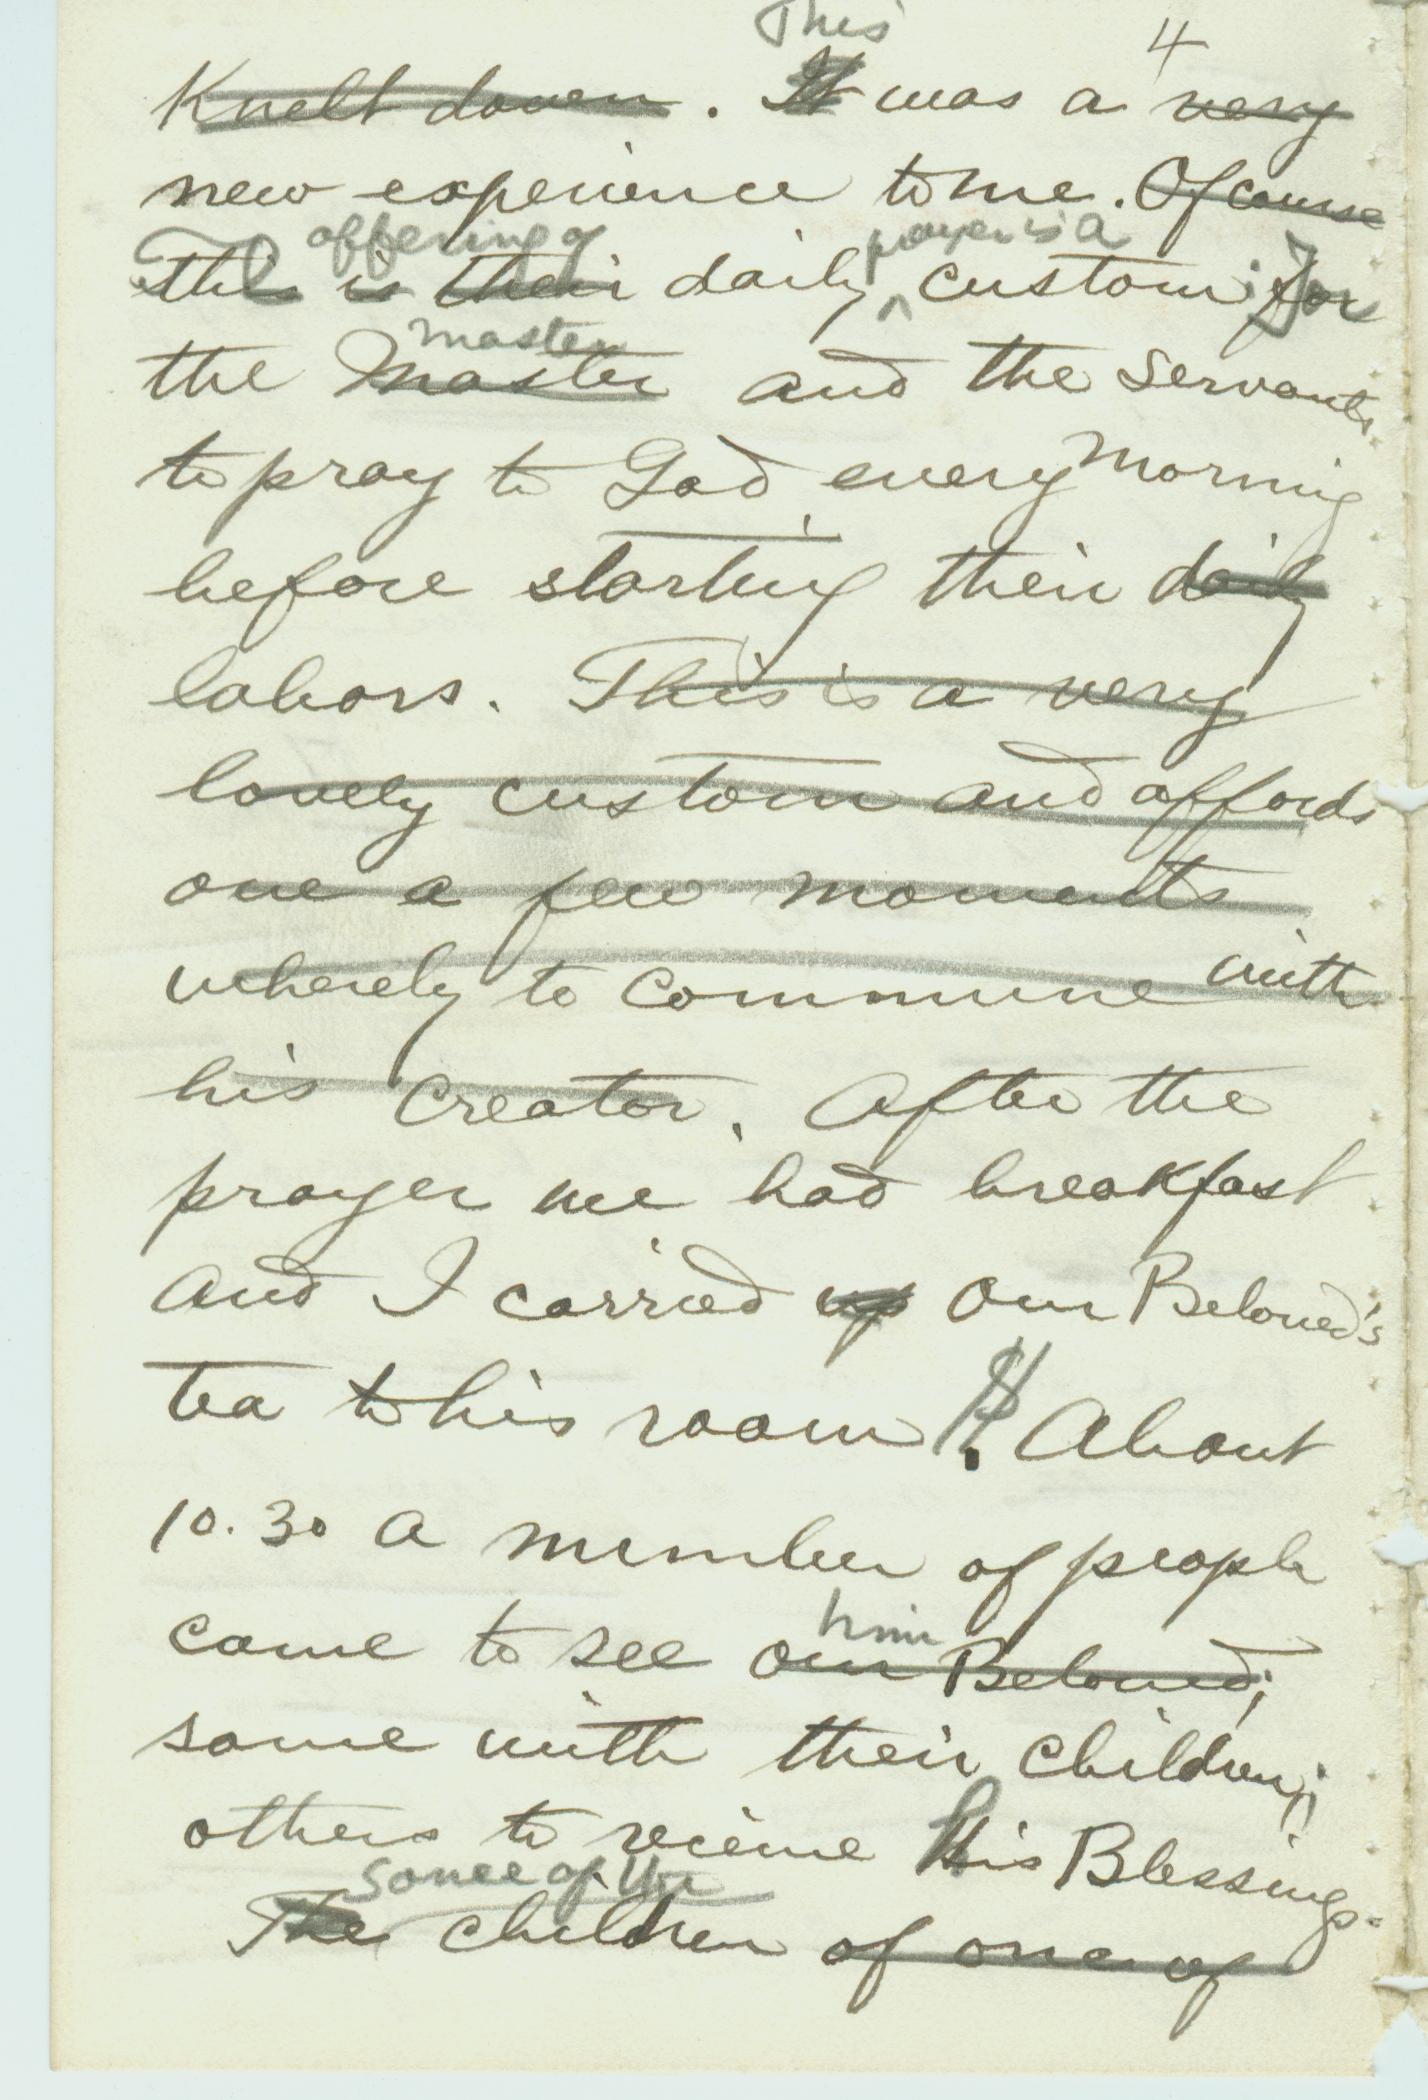 This 4
Knelt down. It was a very
new experience to me. Of course
The offering of prayer is a
this is their daily custom; for
master
the Master and the servants
to pray to God every morning
before starting their daily
labors. This is a very
lovely custom and affords
one a few moments
whereby to commune with
his Creator. After the
prayer we had breakfast
and I carried up our Beloved's
tea to his room. About
10.30 a number of people
him
came to see our Beloved;
some with their children;
others to recieve His Blessings.
some of the
The children of one of